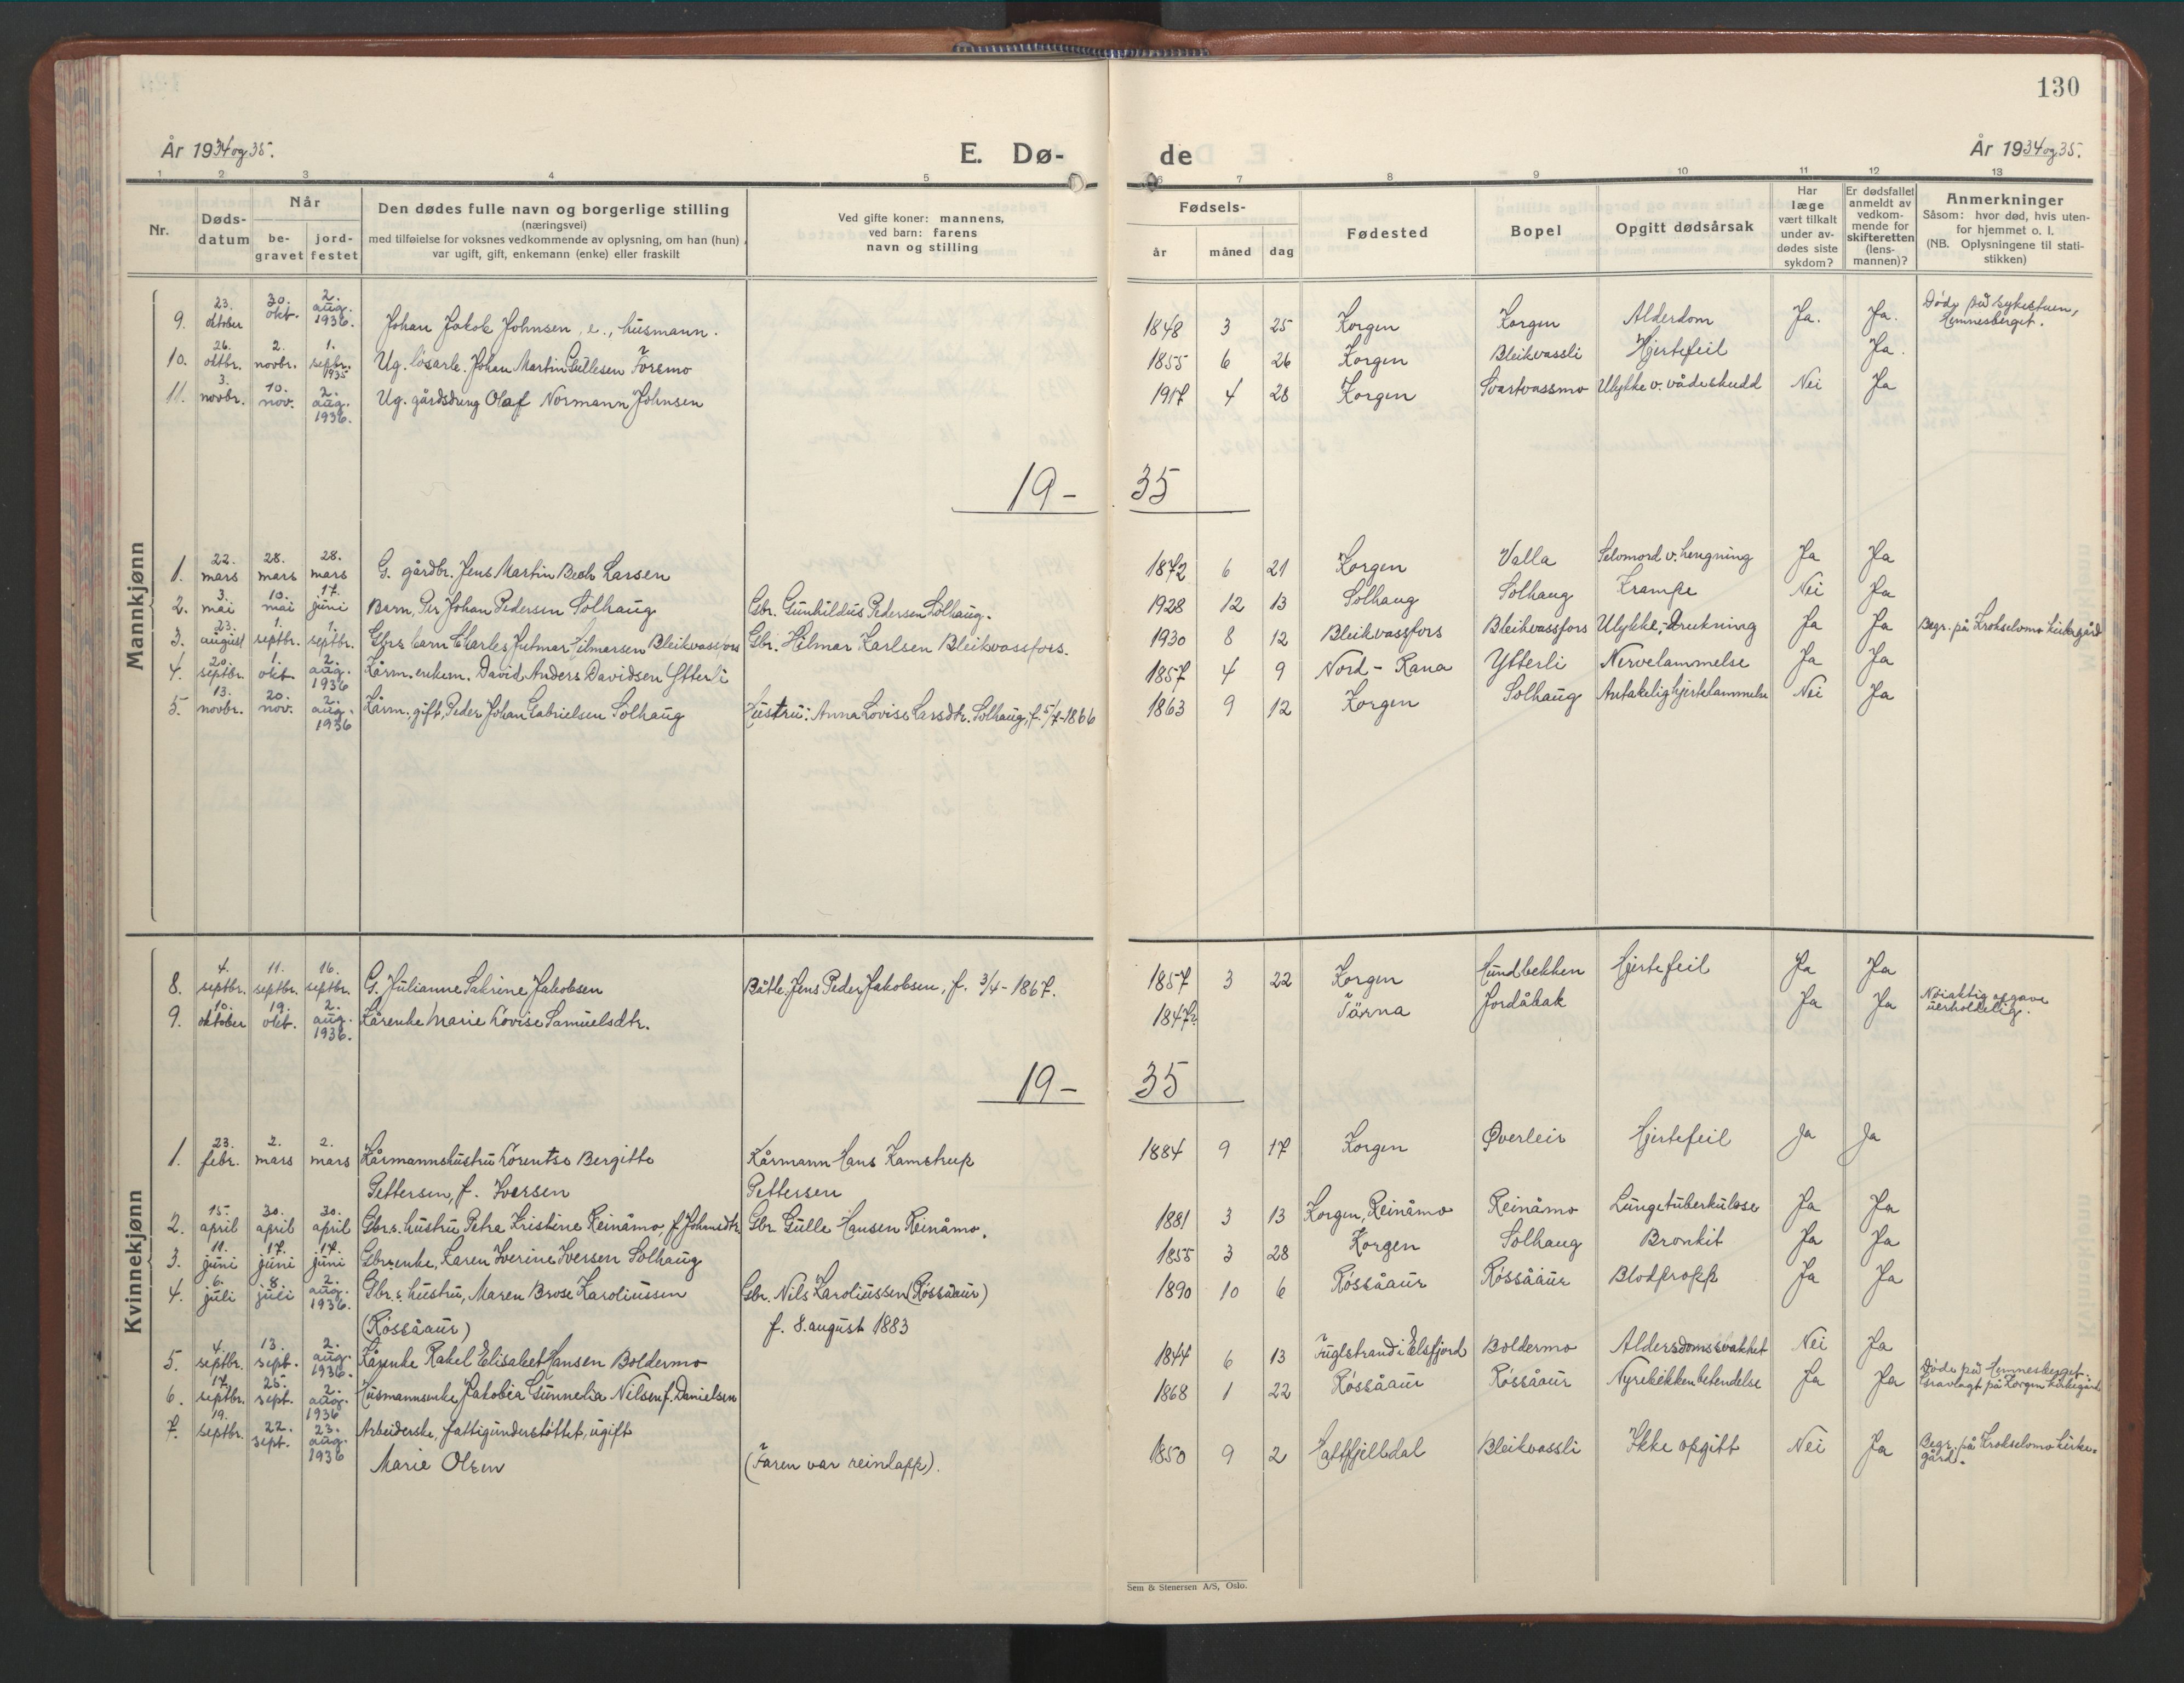 130
År 1934 og 35.
E. Dø-
de
År 1934 og 35.
1 2 3 4 5 6 7 8 9 10 11 12 13
Nr.
Døds-
datum
Når
be-
gravet
jord-
festet
Den dødes fulle navn og borgerlige stilling
(næringsvei)
med tilføielse for voksnes vedkommende av oplysning, om han (hun)
var ugift, gift, enkemann (enke) eller fraskilt
Ved gifte koner: mannens,
ved barn: farens
navn og stilling
Fødsels-
år måned dag
Fødested
Bopel
Opgitt dødsårsak
Har
læge
vært tilkalt
under av-
dødes siste
sykdom?
Er dødsfallet
anmeldt av
vedkom-
mende for
skifteretten
(lens-
mannen)?
Anmerkninger
Såsom: hvor død, hvis uten-
for hjemmet o. l.
(NB. Oplysningene til stati-
stikken)
Mannkjønn
9. 23. oktober 30. okt. 2. aug. 1936. Johan Jakob Johnsen, e., husmann. 1848 3 25 Korgen Korgen Alderdom Ja. Ja. Døde på sykestuen, Hemnesberget.
10. 26. oktbr. 2. novbr. 1. septbr. 1935 Ug. løsarb. Johan Martin Gullesen Forsmo 1855 6 26 Korgen Bleikvassli Hjertefeil Ja.
11. 3. novbr. 10. nov. 2. aug. 1936. Ug. gårdsdreng Olaf Normann Johnsen 1917 4 28 Korgen Svartvassmo Ulykke v. vådeskudd Nei Ja
19- 35
1. 22. mars 28. mars 28. mars G. gårdbr. Jens Martin Bech Larsen 1872 6 21 Korgen Valla Selvmord v. hengning Ja Ja
2. 3. mai 10. mai 17. juni Barn, Per Johan Pedersen Solhaug Gbr. Gunhildus Pedersen Solhaug. 1928 12 13 Solhaug Solhaug Krampe Nei Ja
3. 23. august 1. septbr. 1. septbr. Gbrs barn Charles Jutmar Hilmarsen Bleikvassfors Gbr. Hilmar Karlsen Bleikvassfors. 1930 8 12 Bleikvassfors Bleikvassfors Ulykke, Drukning Ja Ja Begr. på Krokselvmo kirkegård
4. 20. septbr. 1. okt 2. aug. 1936 Kårm. enkem. David Anders Davidsen Ytterli 1857 4 9 Nord-Rana Ytterli Nervelammelse Ja Ja
5. 13. novbr. 20. nov. 2. aug. 1936 Kårm. gift, Peder Johan Gabrielsen Solhaug Hustru: Anna Lovise Larsdtr. Solhaug, f. 5/7-1866 1863 9 12 Korgen Solhaug Antakelig hjertelammelse Nei Ja
Kvinnekjønn
8. 4. septbr. 11. septbr. 16. septbr. G. Julianne Sakrine Jakobsen Båtb. Jens Peder Jakobsen, f. 3/4-1867. 1857 3 22 Korgen Hundbekken Hjertefeil Ja Ja
9. 10. oktober 19. okt. 2. aug. 1936. Kårenke Marie Lovise Samuelsdtr. 1847? Tärna Jordåbak Ja Ja Nøiaktig opgave uerholdelig.
19- 35
1. 23. febr. 2. mars 2. mars Kårmannshustru Lorentse Bergitte Kårmann Hans Kamstrup 1884 9 17 Korgen Øverleir Hjertefeil Ja Ja
Pettersen, f. Iversen Pettersen
2. 15. april 30. april 30. april Gbrs. hustru Petra Kristine Reinåmo f. Johnsdtr. Gbr Gulle Hansen Reinåmo. 1881 3 13 Korgen, Reinåmo Reinåmo Lungetuberkulose Ja Ja
3. 11. juni 17. juni 17. juni Gbrs enke, Karen Iverine Iversen Solhaug 1855 3 28 Korgen Solhaug Bronkit Ja Ja
4. 6. juli 8. juli 2. aug. 1936. Gbr.s hustru, Maren Brose Karoliussen Gbr. Nils Karoliussen (Røssåaur) 1890 10 6 Røssåaur Røssåaur Blodpropp Ja Ja
(Røssåaur) f. 8. august 1883
5. 4. septbr. 13. sept. 2. aug. 1936. Kårenke Rakel Elisabet Hansen Boldermo 1844 6 13 Fuglstrand i Elsfjord Boldermo Aldersdomssvakhet Nei Ja
6. 17. septbr. 25. sept. 2. aug. 1936 Husmannsenke Jakobia Gunnelia Nilsen f. Danielsen 1868 1 22 Røssåaur Røssåaur Nyrebekkenbetendelse Ja Ja Døde på Hemnesberget. Gravlagt på Korgen kirkegård
7. 19. septbr. 22. sept. 23. aug. 1936 Arbeiderske, fattigunderstøttet, ugift
Marie Olsen (Faren var reinlapp). 1850 9 2 Hattfjelldal Bleikvassli Ikke opgitt Nei Ja Begr. på Krokselvmo kirkegård.
Sem & Stenersen A/S, Oslo.